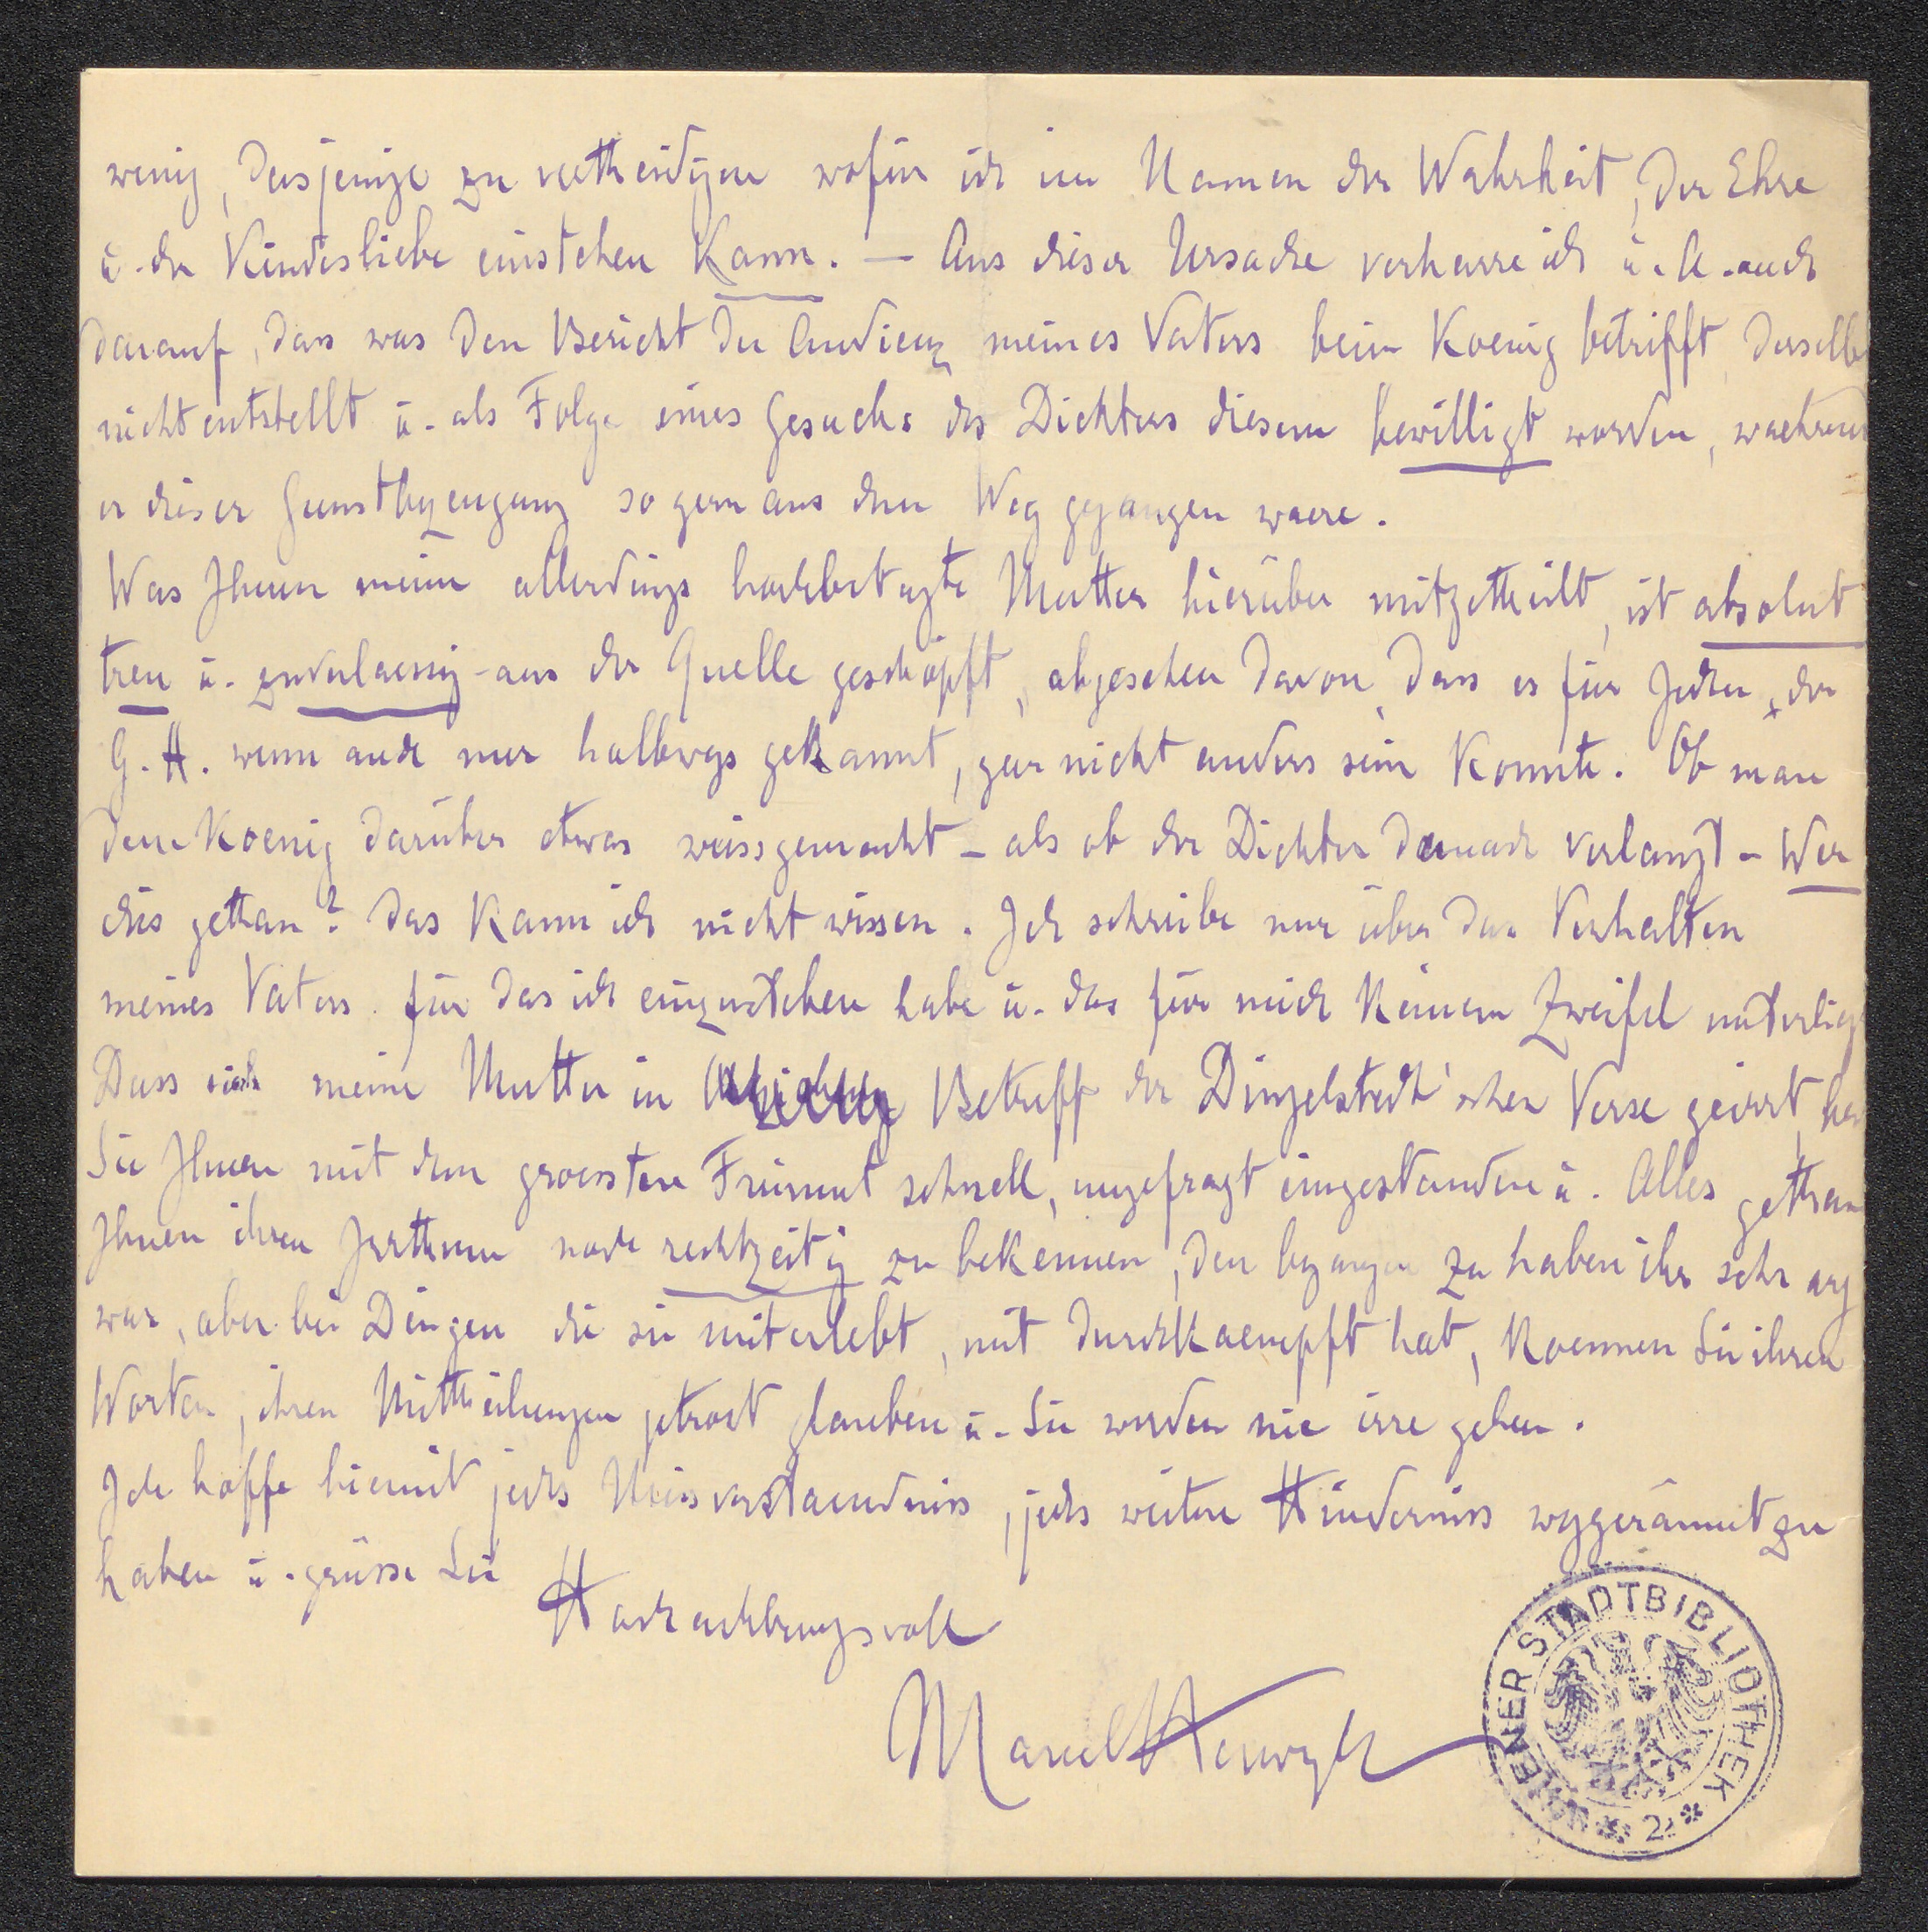 wenig, dasjenige zu vertheidigen wofür ich im Namen der Wahrheit, der Ehre
u. der Kindesliebe einstehen Kann. — Aus dieser Ursache verharre ich u. A. auch
darauf, dass was den Bericht der Audienz meines Vaters beim Koenig betrifft, derselbe
nicht entstellt u. als Folge eines Gesuchs des Dichters diesem bewilligt worden, waehrend
er dieser Gunstbezeugung so gern aus dem Weg gegangen waere.
Was Ihnen meine allerdings hochbetagte Mutter hierüber mitgetheilt, ist absolut
treu u. zuverlaessig - aus der Quelle geschöpft, abgesehen davon, dass es für Jeden, der
G. H. wenn auch nur halbwegs gekannt, gar nicht anders sein Konnte. Ob man
dem Koenig darüber etwas weissgemacht - als ob der Dichter danach verlangt - Wer
dies gethan? das Kann ich nicht wissen. Ich schreibe nur über das Verhalten
meines Vaters für das ich einzustehen habe u. das für mich Keinem Zweifel unterliegt
Dass sich meine Mutter in Betreff der Dingelstedt'schen Verse geirrt, hat
Sie Ihnen mit dem groessten Freimut schnell, ungefragt eingestanden u. Alles gethan
Ihnen ihren Irrthum noch rechtzeitig zu beKennen, den begangen zu haben ihr sehr arg
war, aber bei Dingen die sie miterlebt, mit durchKaempft hat, Koennen Sie ihren
Worten, ihren Mittheilungen getrost glauben u. Sie werden nie irre gehen.
Ich hoffe hiemit jedes Missverstaendniss, jedes weitere Hinderniss weggeräumt zu
haben u. grüsse Sie
Hochachtungsvoll
Marcel Herwegh
WIENER STADTBIBLIOTHEK
* 2 *